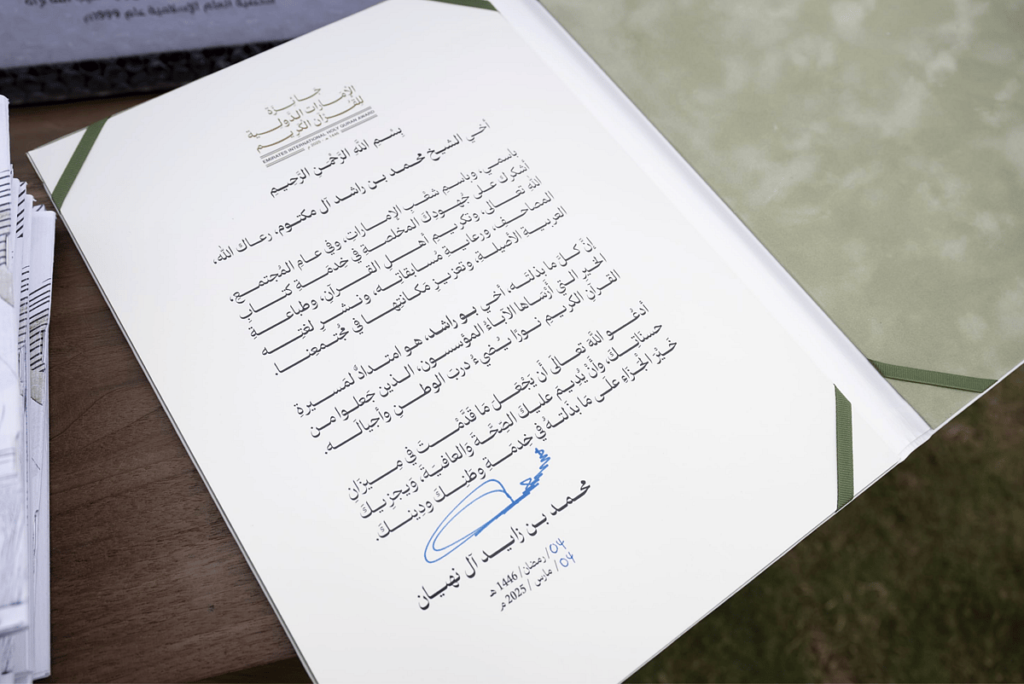 شخصية العام الإسلامية عام 1999م
جائزة
الإمارات الدولية
للقرآن الكريم
EMIRATES INTERNATIONAL HOLY QURAN AWARD
بِسْمِ اللهِ الرَّحْمٰنِ الرَّحِيمِ
أخي الشيخ محمد بن راشد آل مكتوم، رعاك الله،
باسمي، وباسم شعْبِ الإمارات، وفي عام المُجتمع،
أشكرك على جُهودكَ المخلصة في خِدمة كتابِ
الله تعالى، وتكريم أهلِ القرآن، وطباعة
المصاحف، ورعاية مُسابقاته، ونشرِ لغتِه
العربية الأصيلة، وتعزيزِ مَكانتِها في مُجتمعِنا.
إنَّ كلَّ ما بذلته، أخي بو راشد، هو امتدادٌ لمَسيرةِ
الخيرِ التي أرْساها الآباءُ المؤسسون، الذين جَعلوا من
القرآنِ الكريمِ نورًا يُضيءُ دربَ الوطنِ وأجيالَه.
أدعُو اللهَ تعالَى أَن يَجْعَلَ مَا قَدَّمْتَ في مِيزَانِ
حسنَاتِكَ، وأنْ يُديمَ عليكَ الصِّحَّةَ وَالعافيَةَ، وَيجزِيكَ
خَيْرَ الجَزَاءِ علَى مَا بذَلتَهُ في خِدمَةِ وطَنِكَ ودِينكَ.
محمد بن زايد آل نهيان
04 / رمضان / 1446 هـ
04 / مارس / 2025 م